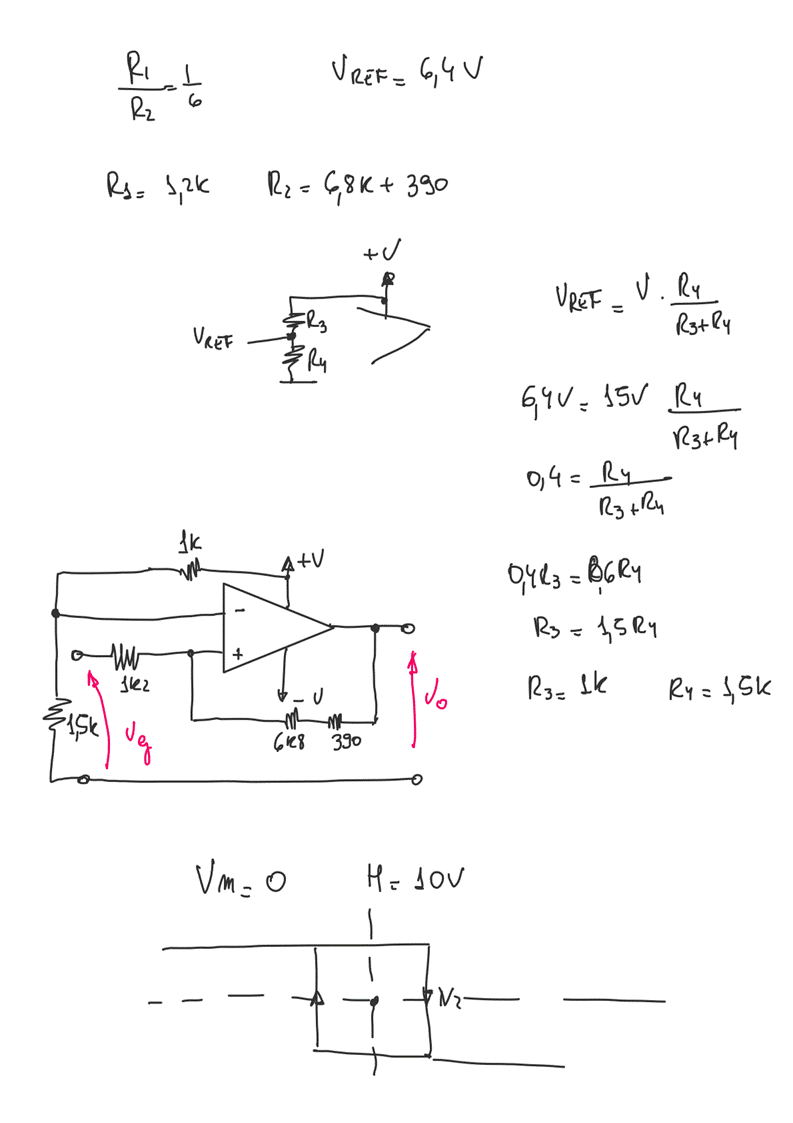 R1/R2 = 1/6 VREF = 6,4V
R1 = 1,2K R2 = 6,8K + 390
+V
R3
VREF
R4
VREF = V · R4/(R3+R4)
6,4V = 15V R4/(R3+R4)
0,4 = R4/(R3+R4)
0,4R3 = 0,6R4
R3 = 1,5R4
R3 = 1K R4 = 1,5K
1K
+V
-
+
1K2
- V
1,5K
Vg
6K8 390
Vo
Vm = 0 H = 10V
V2